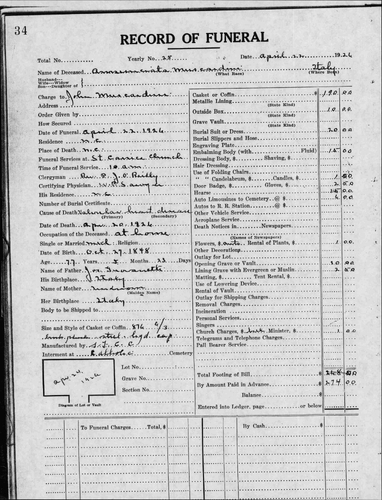 34
RECORD OF FUNERAL
Total No. Yearly No. 28 Date April 22 1926
Name of Deceased Annunciata Muscardini Italy
(What Race) (Where Born)
Husband—
Wife—Widow
Son—Daughter of
Charge to John Muscardini
Address
Order Given by
How Secured
Date of Funeral April 22, 1926
Residence M.C.
Place of Death M.C.
Funeral Services at St. Church
Time of Service 10 a.m.
Clergyman Rev. P. J. O'Reilly
Certifying Physician W. P. Sawyer
His Residence M.C.
Number of Burial Certificate
Cause of Death Valvular heart disease
(Primary) (Secondary)
Date of Death Apr. 20, 1926
Occupation of the Deceased at home
Single or Married Religion
Date of Birth Oct. 27, 1848
Age 77 Years 5 Months 23 Days
Name of Father Jos.
His Birthplace Italy
Name of Mother unknown
(Maiden Name)
Her Birthplace Italy
Body to be Shipped to
Size and Style of Casket or Coffin 876 6/3
Manufactured by S. F. C. C.
Interment at Catholic Cemetery
Lot No.
Grave No.
Section No.
Apr. 22, 1926
Diagram of Lot or Vault
Casket or Coffin $ 190 00
Metallic Lining
(State Kind)
Outside Box 10 00
(State Kind)
Grave Vault
(State Kind)
Burial Suit or Dress 20 00
Burial Slippers and Hose
Engraving Plate
Embalming Body (with Fluid) 15 00
Dressing Body, $ Shaving, $
Hair Dressing
Use of Folding Chairs
" " Candelabrum, $ Candles, $ 1 50
Door Badge, $ Gloves, $ 2 50
Hearse 15 00
Auto Limousines to Cemetery @ $ 6 00
Autos to R. R. Station @ $
Other Vehicle Service
Aeroplane Service
Death Notices in Newspapers
(Names of Newspapers)
Flowers, $ Rental of Plants, $ 1 00
Other Decorations
Outlay for Lot
Opening Grave or Vault 10 00
Lining Grave with Evergreen or Muslin 2 50
Matting, $ Tent Rental, $
Use of Lowering Device
Rental of Vault
Outlay for Shipping Charges
Removal Charges
Incineration
Personal Services
Singers
Church Charges, $ Minister, $ 1 00
Telegrams and Telephone Charges
Pall Bearer Service
Total Footing of Bill $
By Amount Paid in Advance 274 00
Balance $
Entered into Ledger, page or below.
To Funeral Charges. Total, $ By Cash. $